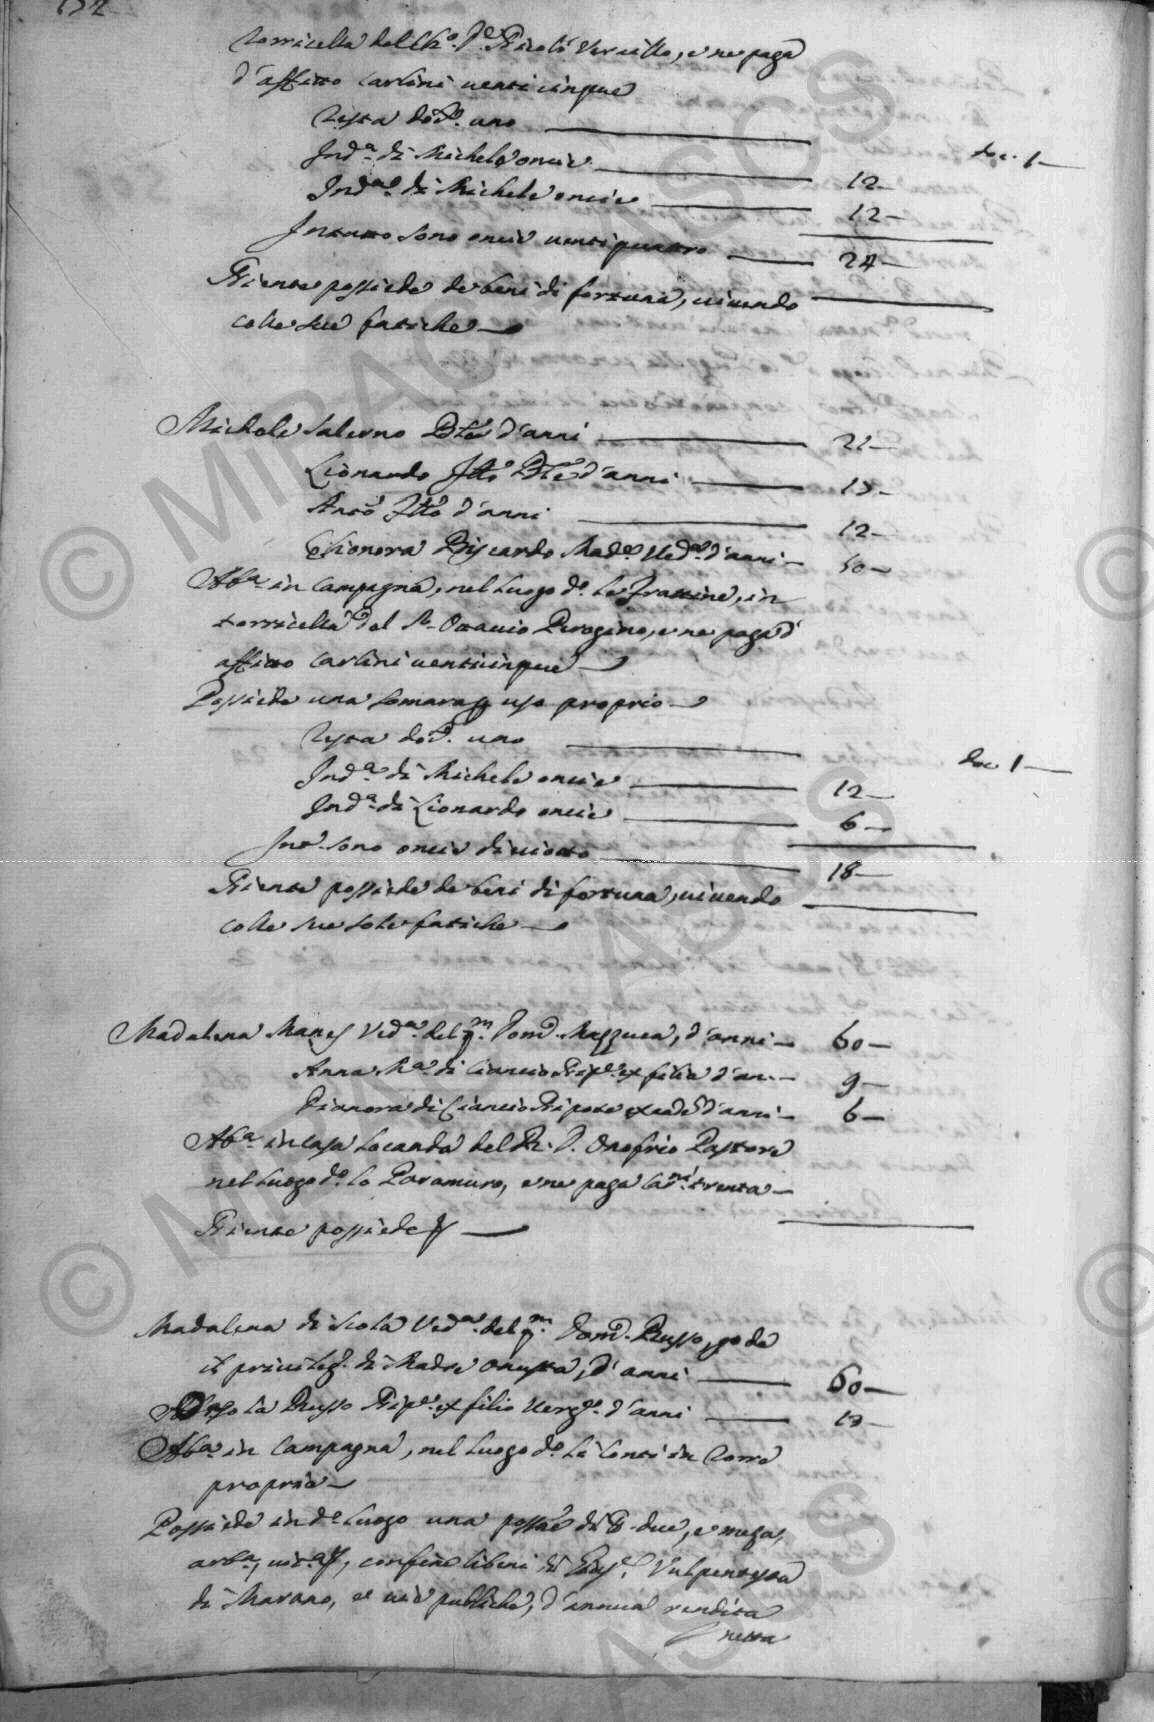 132
torricella del Ch.º D.ⁿ Nicolò Vercillo, e ne paga
d'affitto carlini venticinque
Testa doc. uno doc. 1
Ind.ª di Michele oncie 12
Ind.ª di Michele oncie 12
Intutto sono oncie ventiquattro 24
Niente possiede de beni di fortuna, vivendo
colle sue fatiche
Michele Salerno Ble d'anni 21
Lionardo f.ttö Ble d'anni 13
Ant.º f.ttö d'anni 12
Elionora Biscardo Mad.e Ved.ª d'anni 50
Ab.ª in campagna, nel luogo d.º le Frattine, in
torricella del S.r Ottavio Perogino, e ne paga d'
affitto carlini venticinque
Possiede una somara p uso proprio
Testa doc. uno doc. 1
Ind.ª di Michele oncie 12
Ind.ª di Lionardo oncie 6
Int.º sono oncie diciotto 18
Niente possiede de beni di fortuna, vivendo
colle sue sole fatiche
Madalena Manes Ved.ª del q.m Dom.º Mazzuca, d'anni 60
Anna M.ª di Ciancio Nip.e ex filia d'an. 9
Dianora di Ciancio Nipote ex ead. d'anni 6
Ab.ª in casa locanda del R. D. Onofrio Pastore
nel luogo d.º lo Paramuro, e ne paga car.ni trenta
Niente possiede
Madalena di Scola Ved.ª del q.m Dom.º Russo, gode
il privileg.º di Madre onusta, d'anni 60
Angiola Russo Nip.e ex filio Verg.e d'anni 13
Ab.ª in campagna, nel luogo d.º li Conti in torre
propria
Possiede in d.º luogo una possⁿe di tt. due, e meza,
arb.ª, vit.ª, confine li beni di Vulpentesta
di Marano, e vie publiche, d'annua rendita
netta